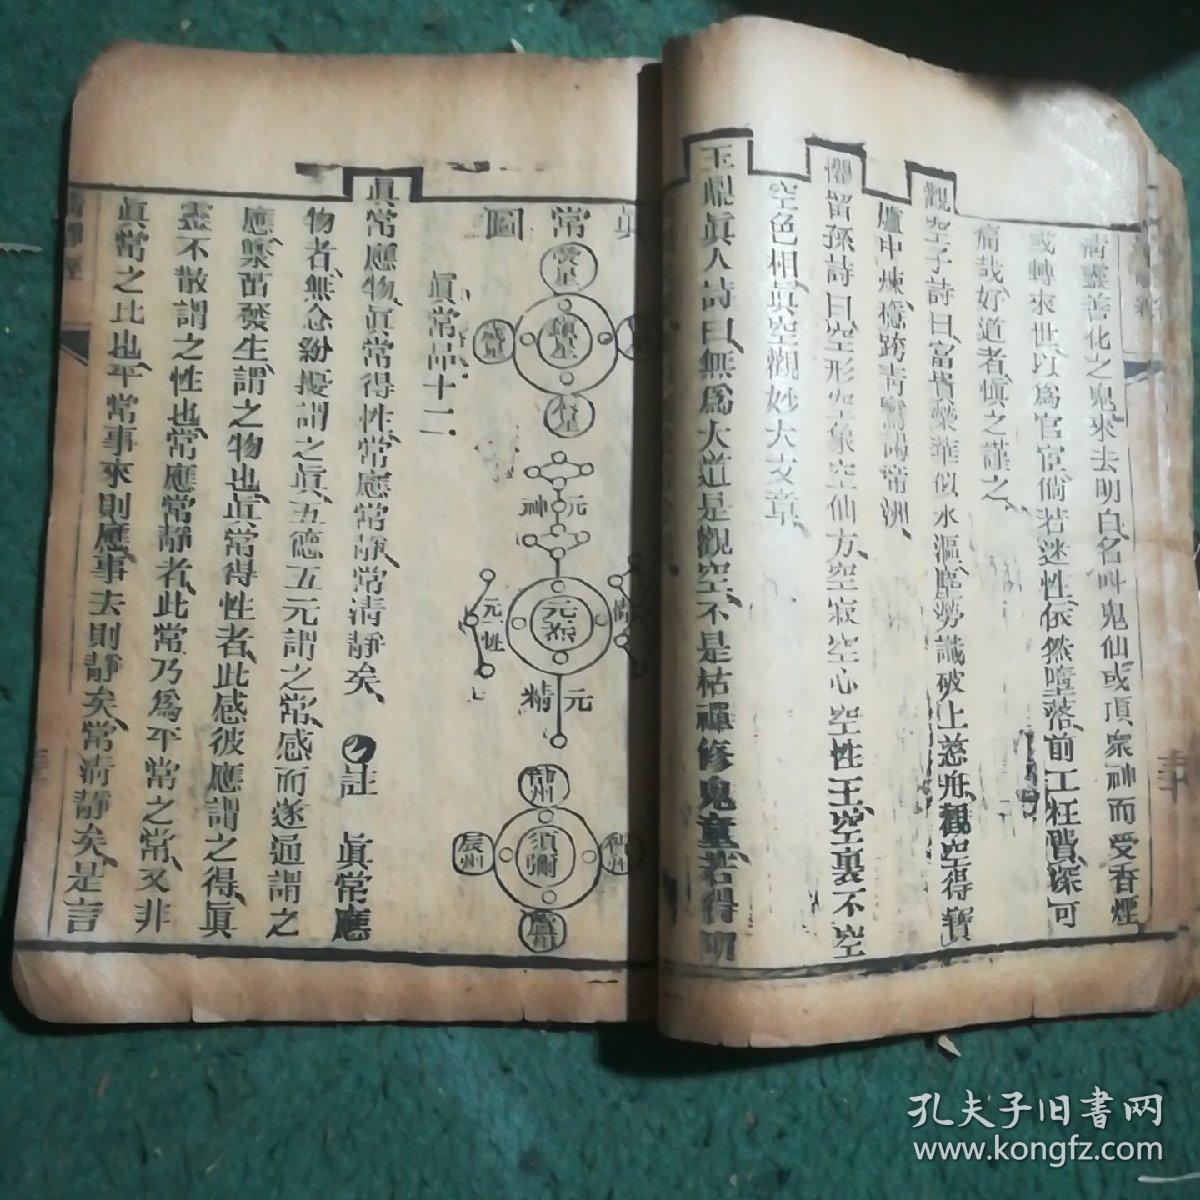 清靈善化之鬼、來去明白、名叫鬼仙、或頂衆神而受香煙
或轉來世、以爲官宦、倘若迷性、依然墮落、前工枉費、深可
痛哉、好道者、愼之謹之、
觀空子詩曰、富貴榮華似水漚、塵勞識破上慈舟、觀空得寶
爐中煉、穩跨青鸞謁帝洲、
懼留孫詩曰、空形空象空仙方、空寂空心空性王、空裏不空
空色相、眞空觀妙大文章、
玉鼎眞人詩曰、無爲大道是觀空、不是枯禪修鬼童、若得明
眞常圖
元神
元性
元炁
元精
須彌
神州
辰州
眞常品十二
眞常應物、眞常得性、常應常靜、常清靜矣、
註 眞常應
物者、無念紛擾謂之眞、五德五元謂之常、感而遂通謂之
應、羣苗發生、謂之物也、眞常得性者、此感彼應謂之得、眞
靈不散謂之性也、常應常靜者、此常乃爲平常之常、又非
眞常之比也、平常事來則應、事去則靜矣、常清靜矣、是言
孔夫子旧书网
www.kongfz.com